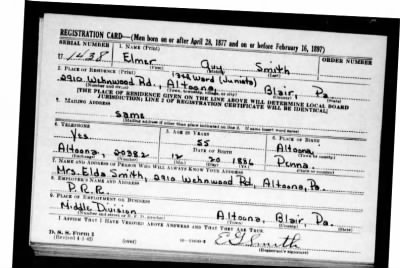 REGISTRATION CARD—(Men born on or after April 28, 1877 and on or before February 16, 1897)
SERIAL NUMBER 1. NAME (Print) ORDER NUMBER
U 1438 Elmer Guy Smith
(First) (Middle) (Last)
2. PLACE OF RESIDENCE (Print) 13th Ward (Juniata)
2910 Wehnwood Rd., Altoona, Blair, Pa.
(Number and street) (State)
[THE PLACE OF RESIDENCE GIVEN ON THE LINE ABOVE WILL DETERMINE LOCAL BOARD
JURISDICTION; LINE 2 OF REGISTRATION CERTIFICATE WILL BE IDENTICAL]
3. MAILING ADDRESS
Same
[Mailing address if other than place indicated on line 2. If same insert word same]
4. TELEPHONE 5. AGE IN YEARS 6. PLACE OF BIRTH
Yes. 55 Altoona,
DATE OF BIRTH (Town or county)
Altoona, 20382 12 20 1886 Penna.
(Exchange) (Number) (Mo.) (Day) (Yr.) (State or country)
7. NAME AND ADDRESS OF PERSON WHO WILL ALWAYS KNOW YOUR ADDRESS
Mrs. Elda Smith, 2910 Wehnwood Rd, Altoona, Pa.
8. EMPLOYER'S NAME AND ADDRESS
P. R. R.
9. PLACE OF EMPLOYMENT OR BUSINESS
Middle Division Altoona, Blair, Pa.
(Number and street or R. F. D. number) (Town) (County) (State)
I AFFIRM THAT I HAVE VERIFIED ABOVE ANSWERS AND THAT THEY ARE TRUE.
D. S. S. Form 1
(Revised 4-1-42) (over) E G Smith
(Registrant's signature)